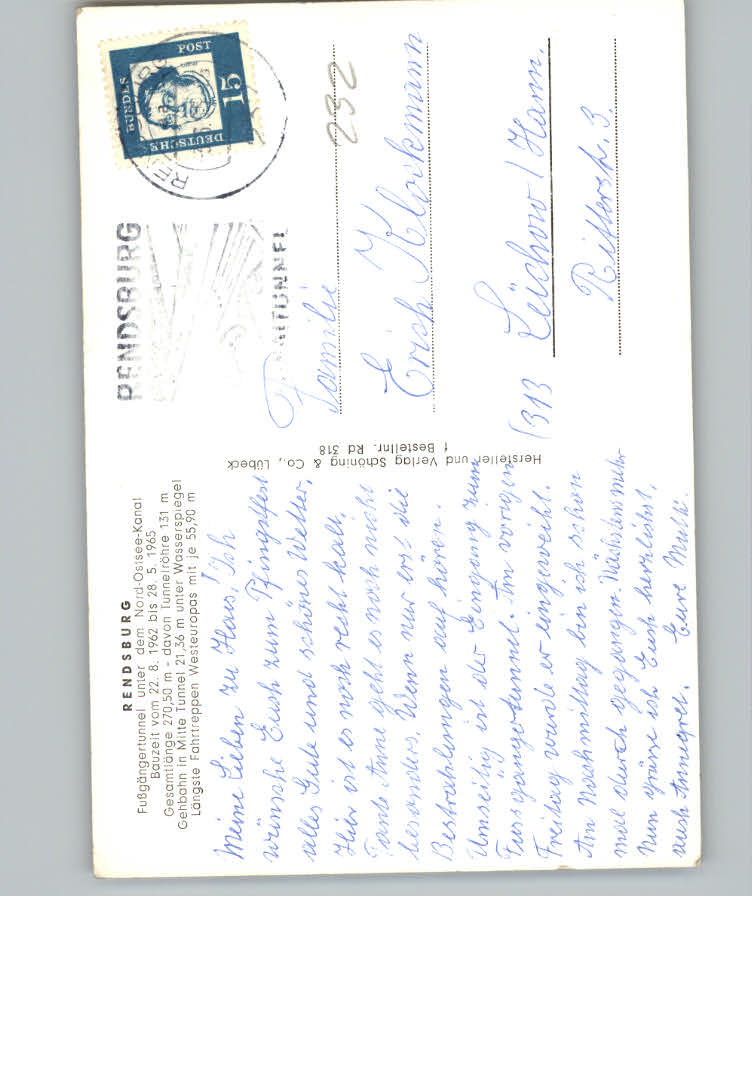 RENDSBURG
Fußgängertunnel unter dem Nord-Ostsee-Kanal
Bauzeit vom 22. 8. 1962 bis 28. 5. 1965
Gesamtlänge 270,50 m - davon Tunnelröhre 131 m
Gehbahn in Mitte Tunnel 21,36 m unter Wasserspiegel
Längste Fahrtreppen Westeuropas mit je 55,90 m
Meine Lieben zu Haus! Ich
wünsche Euch zum Pfingstfest
alles Gute und schönes Wetter,
Hier ist es noch recht kalt.
Tante Anne geht es noch nicht
besonders. Wenn nur erst die
Bestrahlungen auf hören.
Umseitig ist der Eingang zum
Fussgängertunnel. Am vorigen
Freitag wurde er eingeweiht.
Am Nachmittag bin ich schon
mal durch gegangen. Nächstens mehr
Nun grüsse ich Euch herzlichst,
auch Annegret. Eure Mutti.
Hersteller und Verlag Schöning & Co., Lübeck
f Bestellnr. Rd 318
DEUTSCHE
BUNDES
POST
15
RENDSBURG
232
Familie
Erich Klockmann
(313 Lüchow / Hann.
Ritterstr. 3.